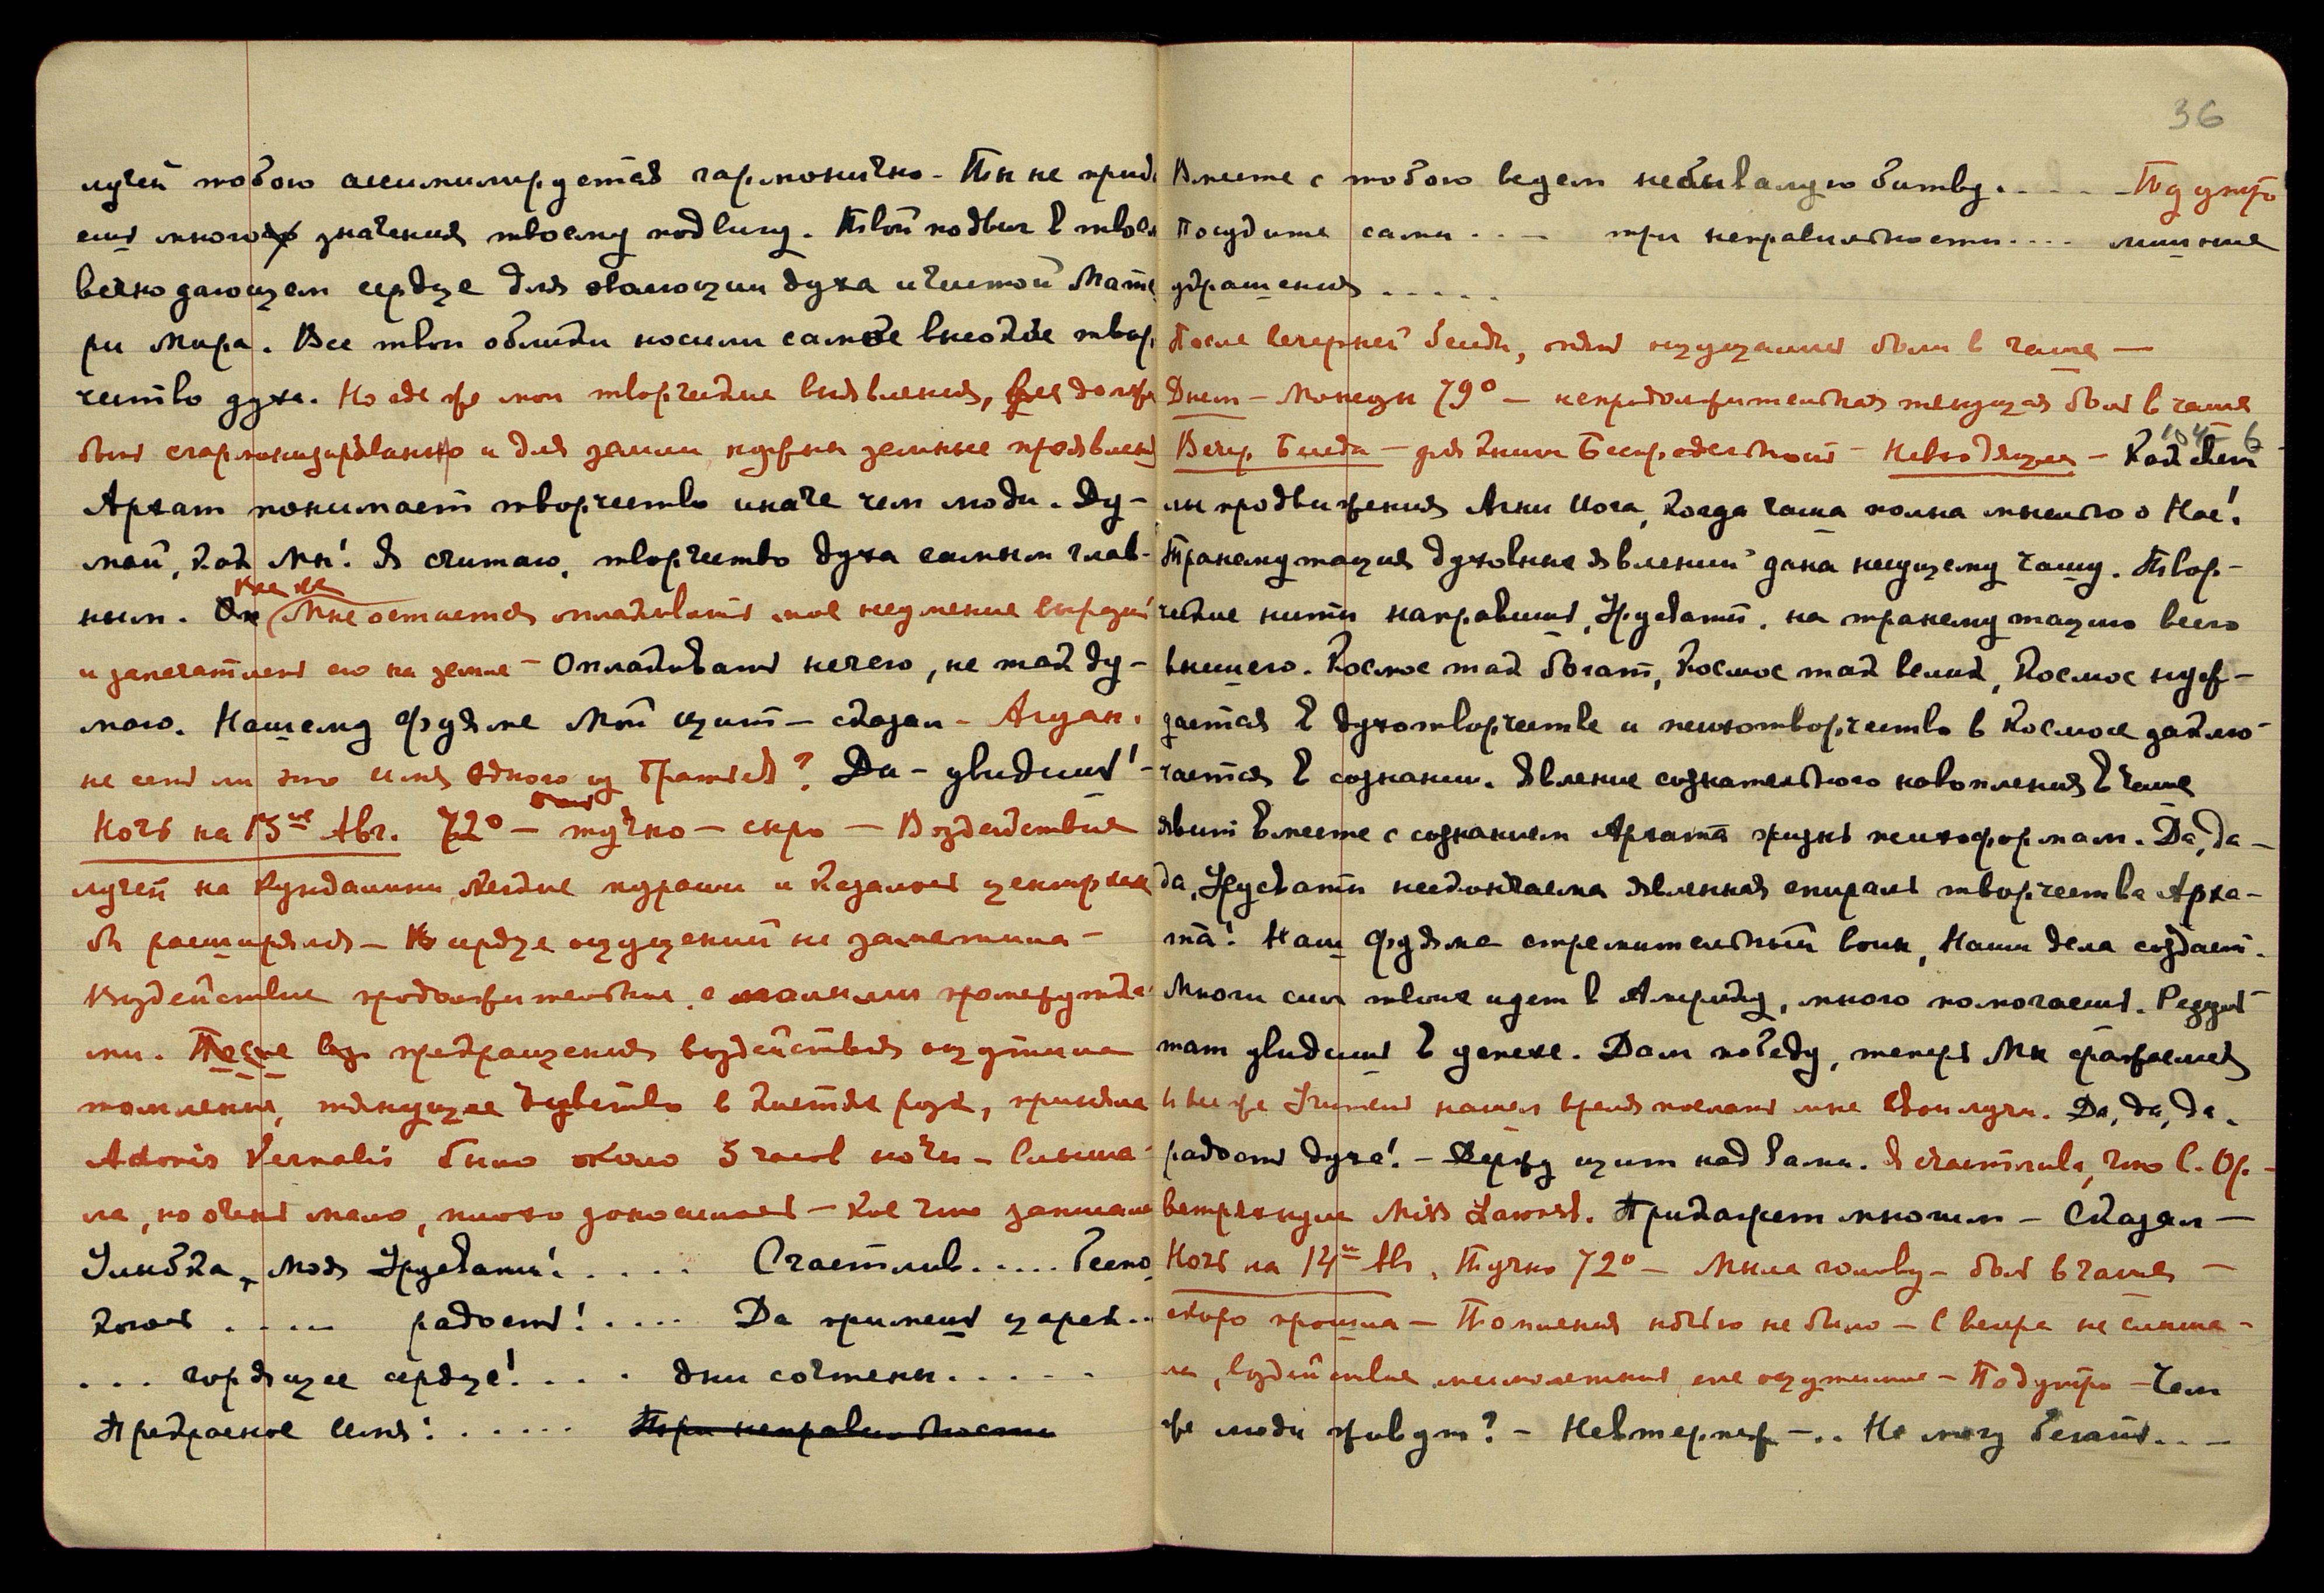 лучей тобою ассимилируется гармонично – Ты не прида
ешь много значения твоему подвигу. Твой подвиг в твоем
вечно дающем сердце для эволюции духа и чистой Мате
ри Мира. Все твои облики носили самое высокое твор
чество духа. Но где же мои творческие выявления, всё должно
быть сгармонизировано и для земли нужны земные проявления
Архат понимает творчество иначе чем люди. Ду-
май, как Мы! Я считаю, творчество духа самым глав-
ным. Мне остается оплакивать мое неумение выразить
и запечатлеть его на земле – Оплакивать нечего, не так ду-
маю. Нашему Фуяме Мой щит – сказал – Агдан.
не есть ли это имя одного из Братьев? Да – увидишь! –
Ночь на 13ое Авг. 72° – тучно – сыро – Воздействие
лучей на Кундалини, легкие мурашки и казалось центр как
бы расширялся – В сердце ощущений не заметила –
Воздействие продолжительное, с малыми промежутка
ми. После прекращения воздействия ощутила
томление, тянущее чувство в кистях рук, приняла
Adonis Vernalis было около 3 часов ночи – слыша-
ла, но очень мало, плохо доносилось – Кое что записала
Улыбка, Моя Урусвати! . . . . Счастлив . . . . . беспо
коюсь . . . . радость! . . . . Да примешь царск..
... горящее сердце! . . . . дни сочтены. . . . .
Прекрасное имя! . . . . . Три неправильности
36
Вместе с тобою ведем небывалую битву. . . . . Под утро
Посудите сами . . . три неправильности . . . . лишние
украшения . . . . .
После вечерней беседы, опять ощущалась боль в чаше –
Днем – Монсун 79° – непродолжительная тянущая боль в чаше
Вечер. Беседа – для книги Беспредельность – Невходящее – Как светл
лы продвижения Агни Йога, когда чаша полна мыслью о Нас!
Трансмутация духовных явлений дана несущему чашу. Твор-
ческие нити направишь, Урусвати, на трансмутацию всего
высшего. Космос так богат, Космос так велик, Космос нуж-
дается в духотворчестве и психотворчество в Космосе заклю-
чается в сознании. Явление сознательного накопления в чаше
явит вместе с сознанием Архата жизнь психоформам. Да, да –
да, Урусвати нескончаема явленная спираль творчества Арха-
та! Наш Фуяма стремительный воин, Наши дела создает.
Много сил твоих идет в Америку, много помогаешь. Резуль-
тат увидишь в успехе. Дам победу, теперь Мы сражаемся
И все же Учитель нашел время послать мне свои лучи. Да, да, да.
радость духа! – Держу щит над вами. Я счастлива, что С. Ор. –
встряхнули Miss . Прикажет многим – Сказал –
Ночь на 14ое Авг. Тучно 72° – Мыла голову – боль в чаше –
скоро прошла – Томления ночью не было – С вечера не слыша-
ла, воздействие мимолетное еле ощутимое – Под утро – Чем
же люди живут? – Невтерпеж – .. Не могу бегать . . –